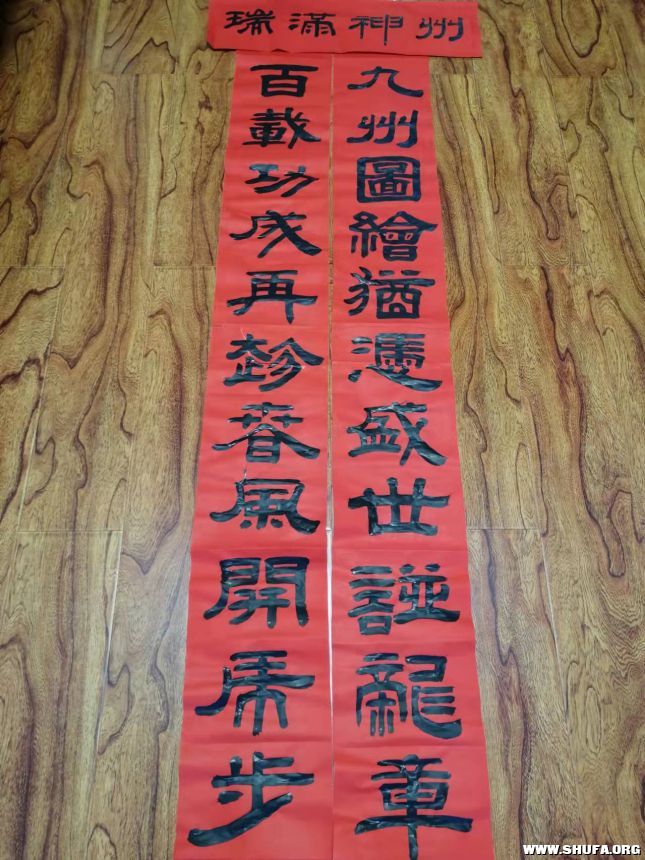 瑞滿神州
九州圖繪猶憑盛世譜龍章
百載功成再趁春風開虎步
WWW.SHUFA.ORG